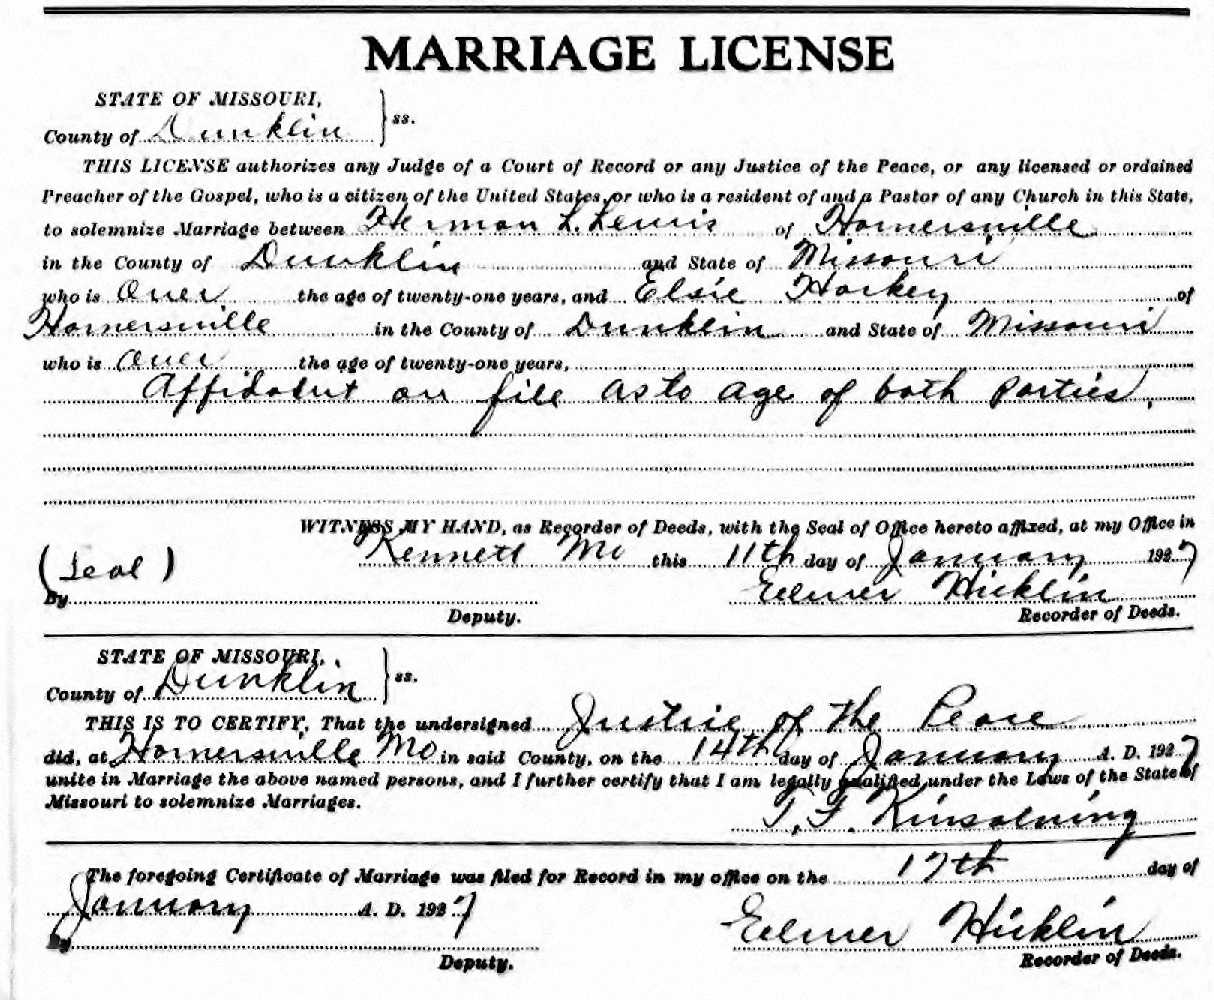 MARRIAGE LICENSE
STATE OF MISSOURI,
County of Dunklin } ss.
THIS LICENSE authorizes any Judge of a Court of Record or any Justice of the Peace, or any licensed or ordained
Preacher of the Gospel, who is a citizen of the United States, or who is a resident of and a Pastor of any Church in this State,
to solemnize Marriage between Herman L. Lewis of Hornersville
in the County of Dunklin and State of Missouri
who is Over the age of twenty-one years, and Elsie Horkey of
Hornersville in the County of Dunklin and State of Missouri
who is Over the age of twenty-one years,
Affidavit on file as to age of both parties.
WITNESS MY HAND, as Recorder of Deeds, with the Seal of Office hereto affixed, at my Office in
Kennett Mo this 11th day of January 1927
(Seal) Eelmer Hicklin
By
Deputy. Recorder of Deeds.
STATE OF MISSOURI,
County of Dunklin } ss.
THIS IS TO CERTIFY, That the undersigned Justice of the Peace
did, at Hornersville Mo in said County, on the 14th day of January A. D. 1927
unite in Marriage the above named persons, and I further certify that I am legally qualified under the Laws of the State of
Missouri to solemnize Marriages.
T. F. Kinsolving
The foregoing Certificate of Marriage was filed for Record in my office on the 17th day of
January A. D. 1927 Eelmer Hicklin
By
Deputy. Recorder of Deeds.